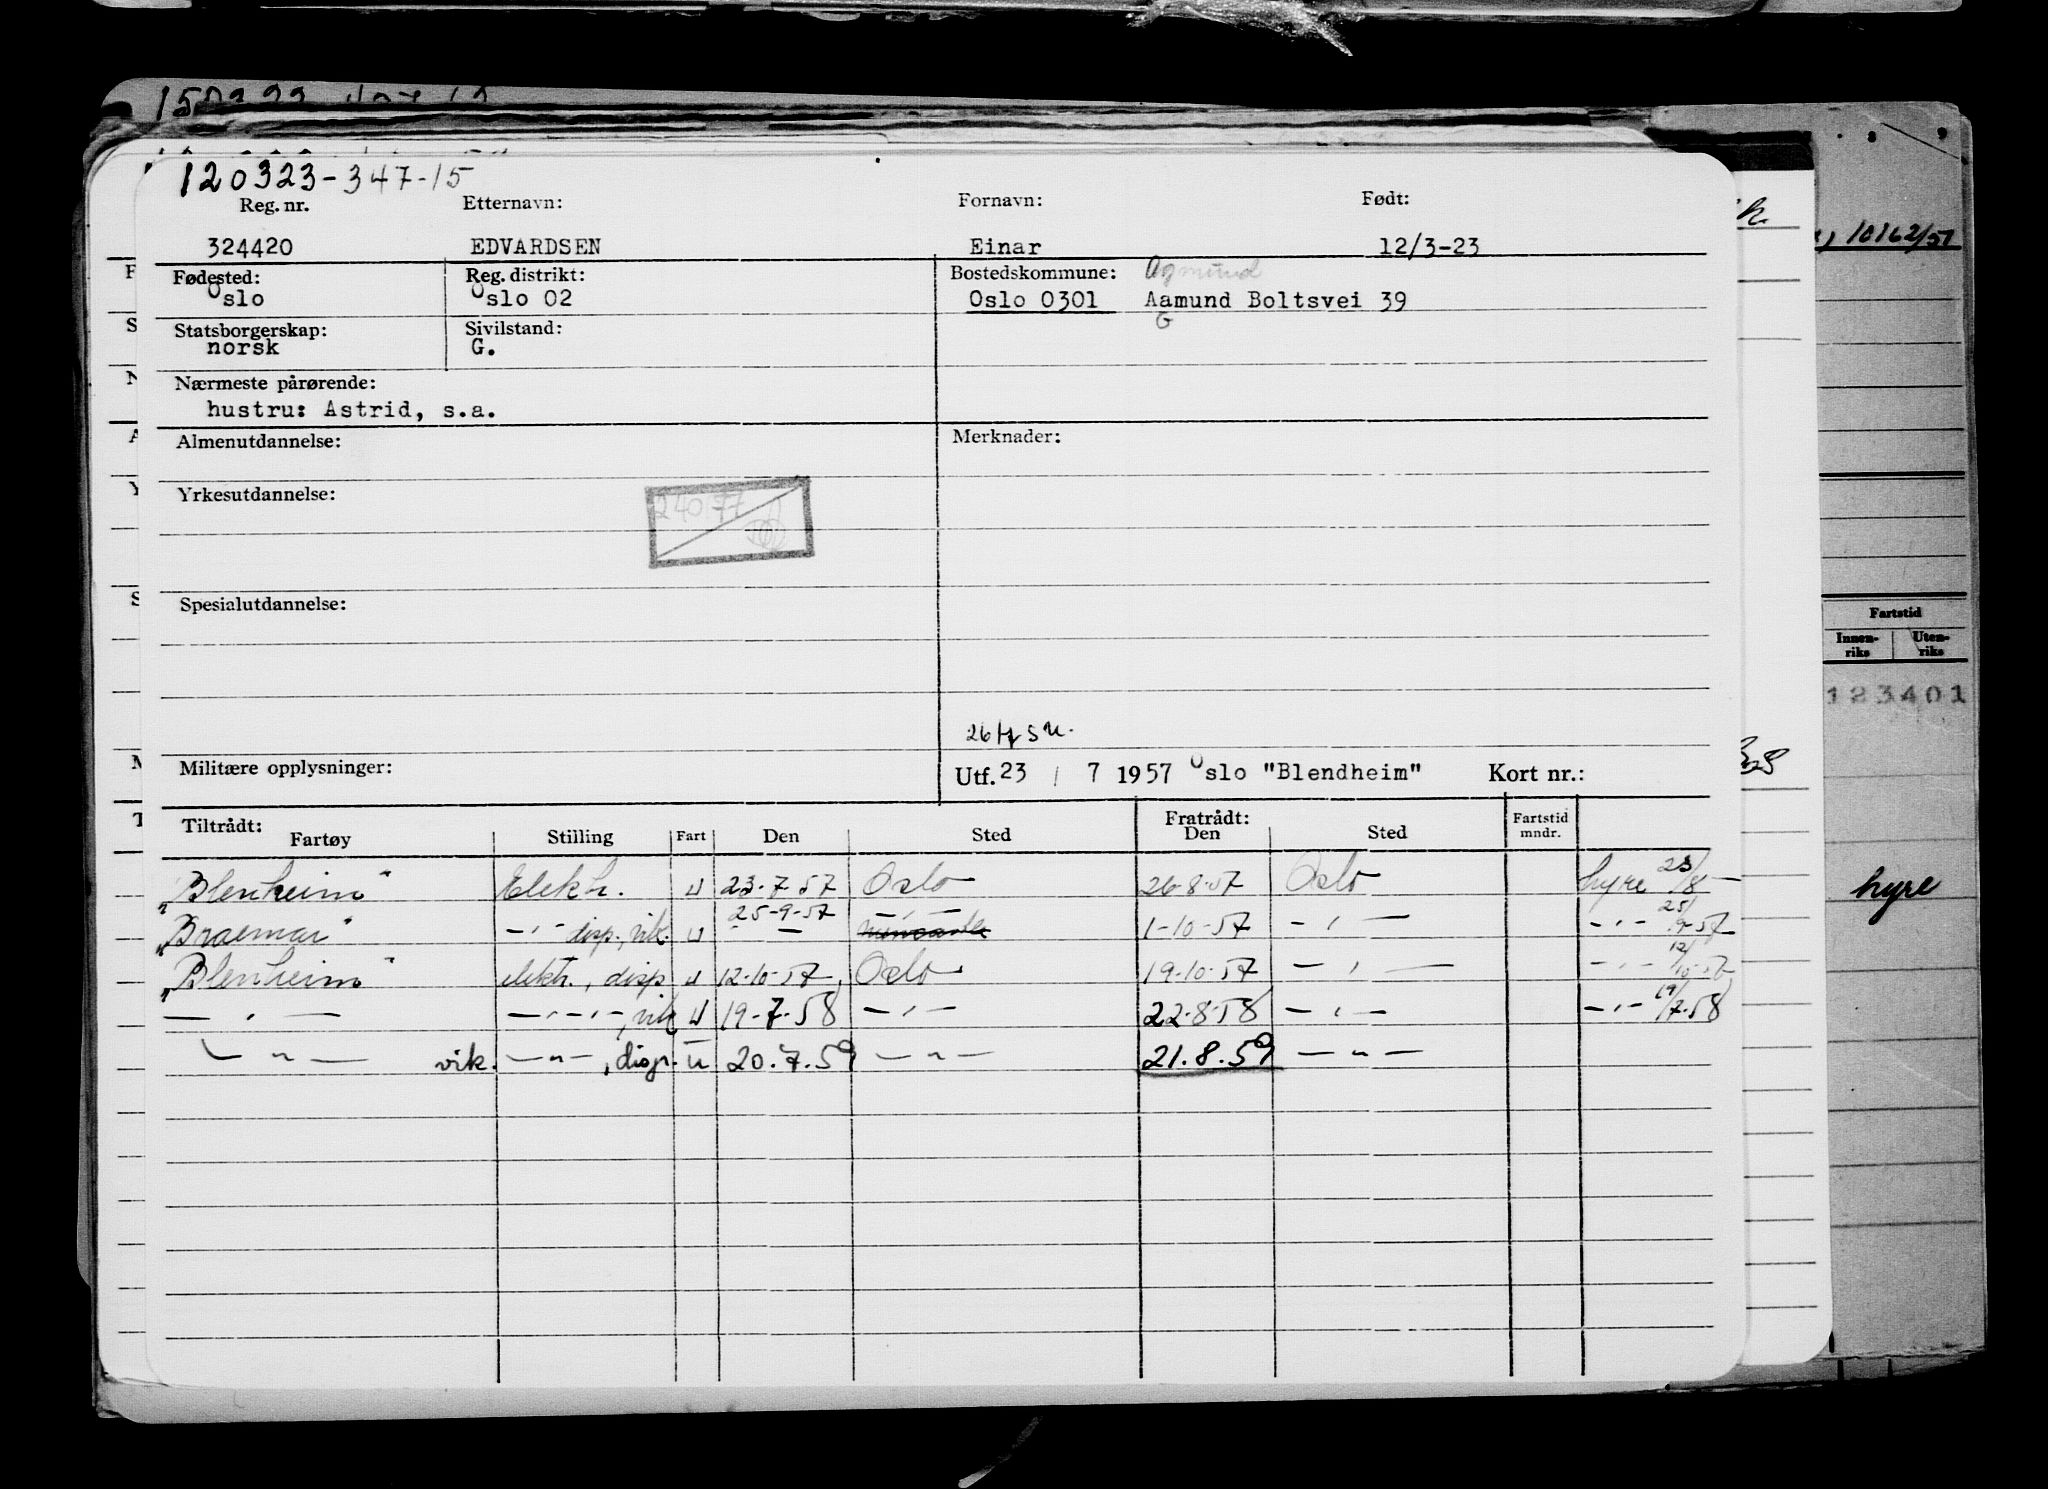 120323-347-15
Reg. nr. Etternavn: Fornavn: Født:
324420 EDVARDSEN Einar 12/3-23
Fødested: Reg. distrikt: Bostedskommune: Agmund
Oslo Oslo 02 Oslo 0301 Aamund Boltsvei 39
G
Statsborgerskap: Sivilstand:
norsk G.
Nærmeste pårørende:
hustru: Astrid, s.a.
Almenutdannelse: Merknader:
Yrkesutdannelse:
240 77
Spesialutdannelse:
Militære opplysninger: Utf. 23 / 7 1957 Oslo "Blendheim" Kort nr.:
Tiltrådt: Fratrådt: Fartstid
Fartøy Stilling Fart Den Sted Den Sted mndr.
"Blenheim" Elektr. U 23-7-57 Oslo 26-8-57 Oslo hyre 23/8 —
25-9-57
"Braemar" -"- disp., vik. U - — 1-10-57 -"- -"- 25/9-57
"Blenheim" elektr., disp U 12-10-57 Oslo 19-10-57 -"- -"- 12/10-57
-"- -"-"-, vik U 19-7-58 -"- 22-8-58 -"- -"- 19/7-58
-"- vik. -"-, disp. u 20.7.59 -"- 21.8.59 -"-
10162/57
Fartstid
Innen-
riks
Uten-
riks
123401
hyre